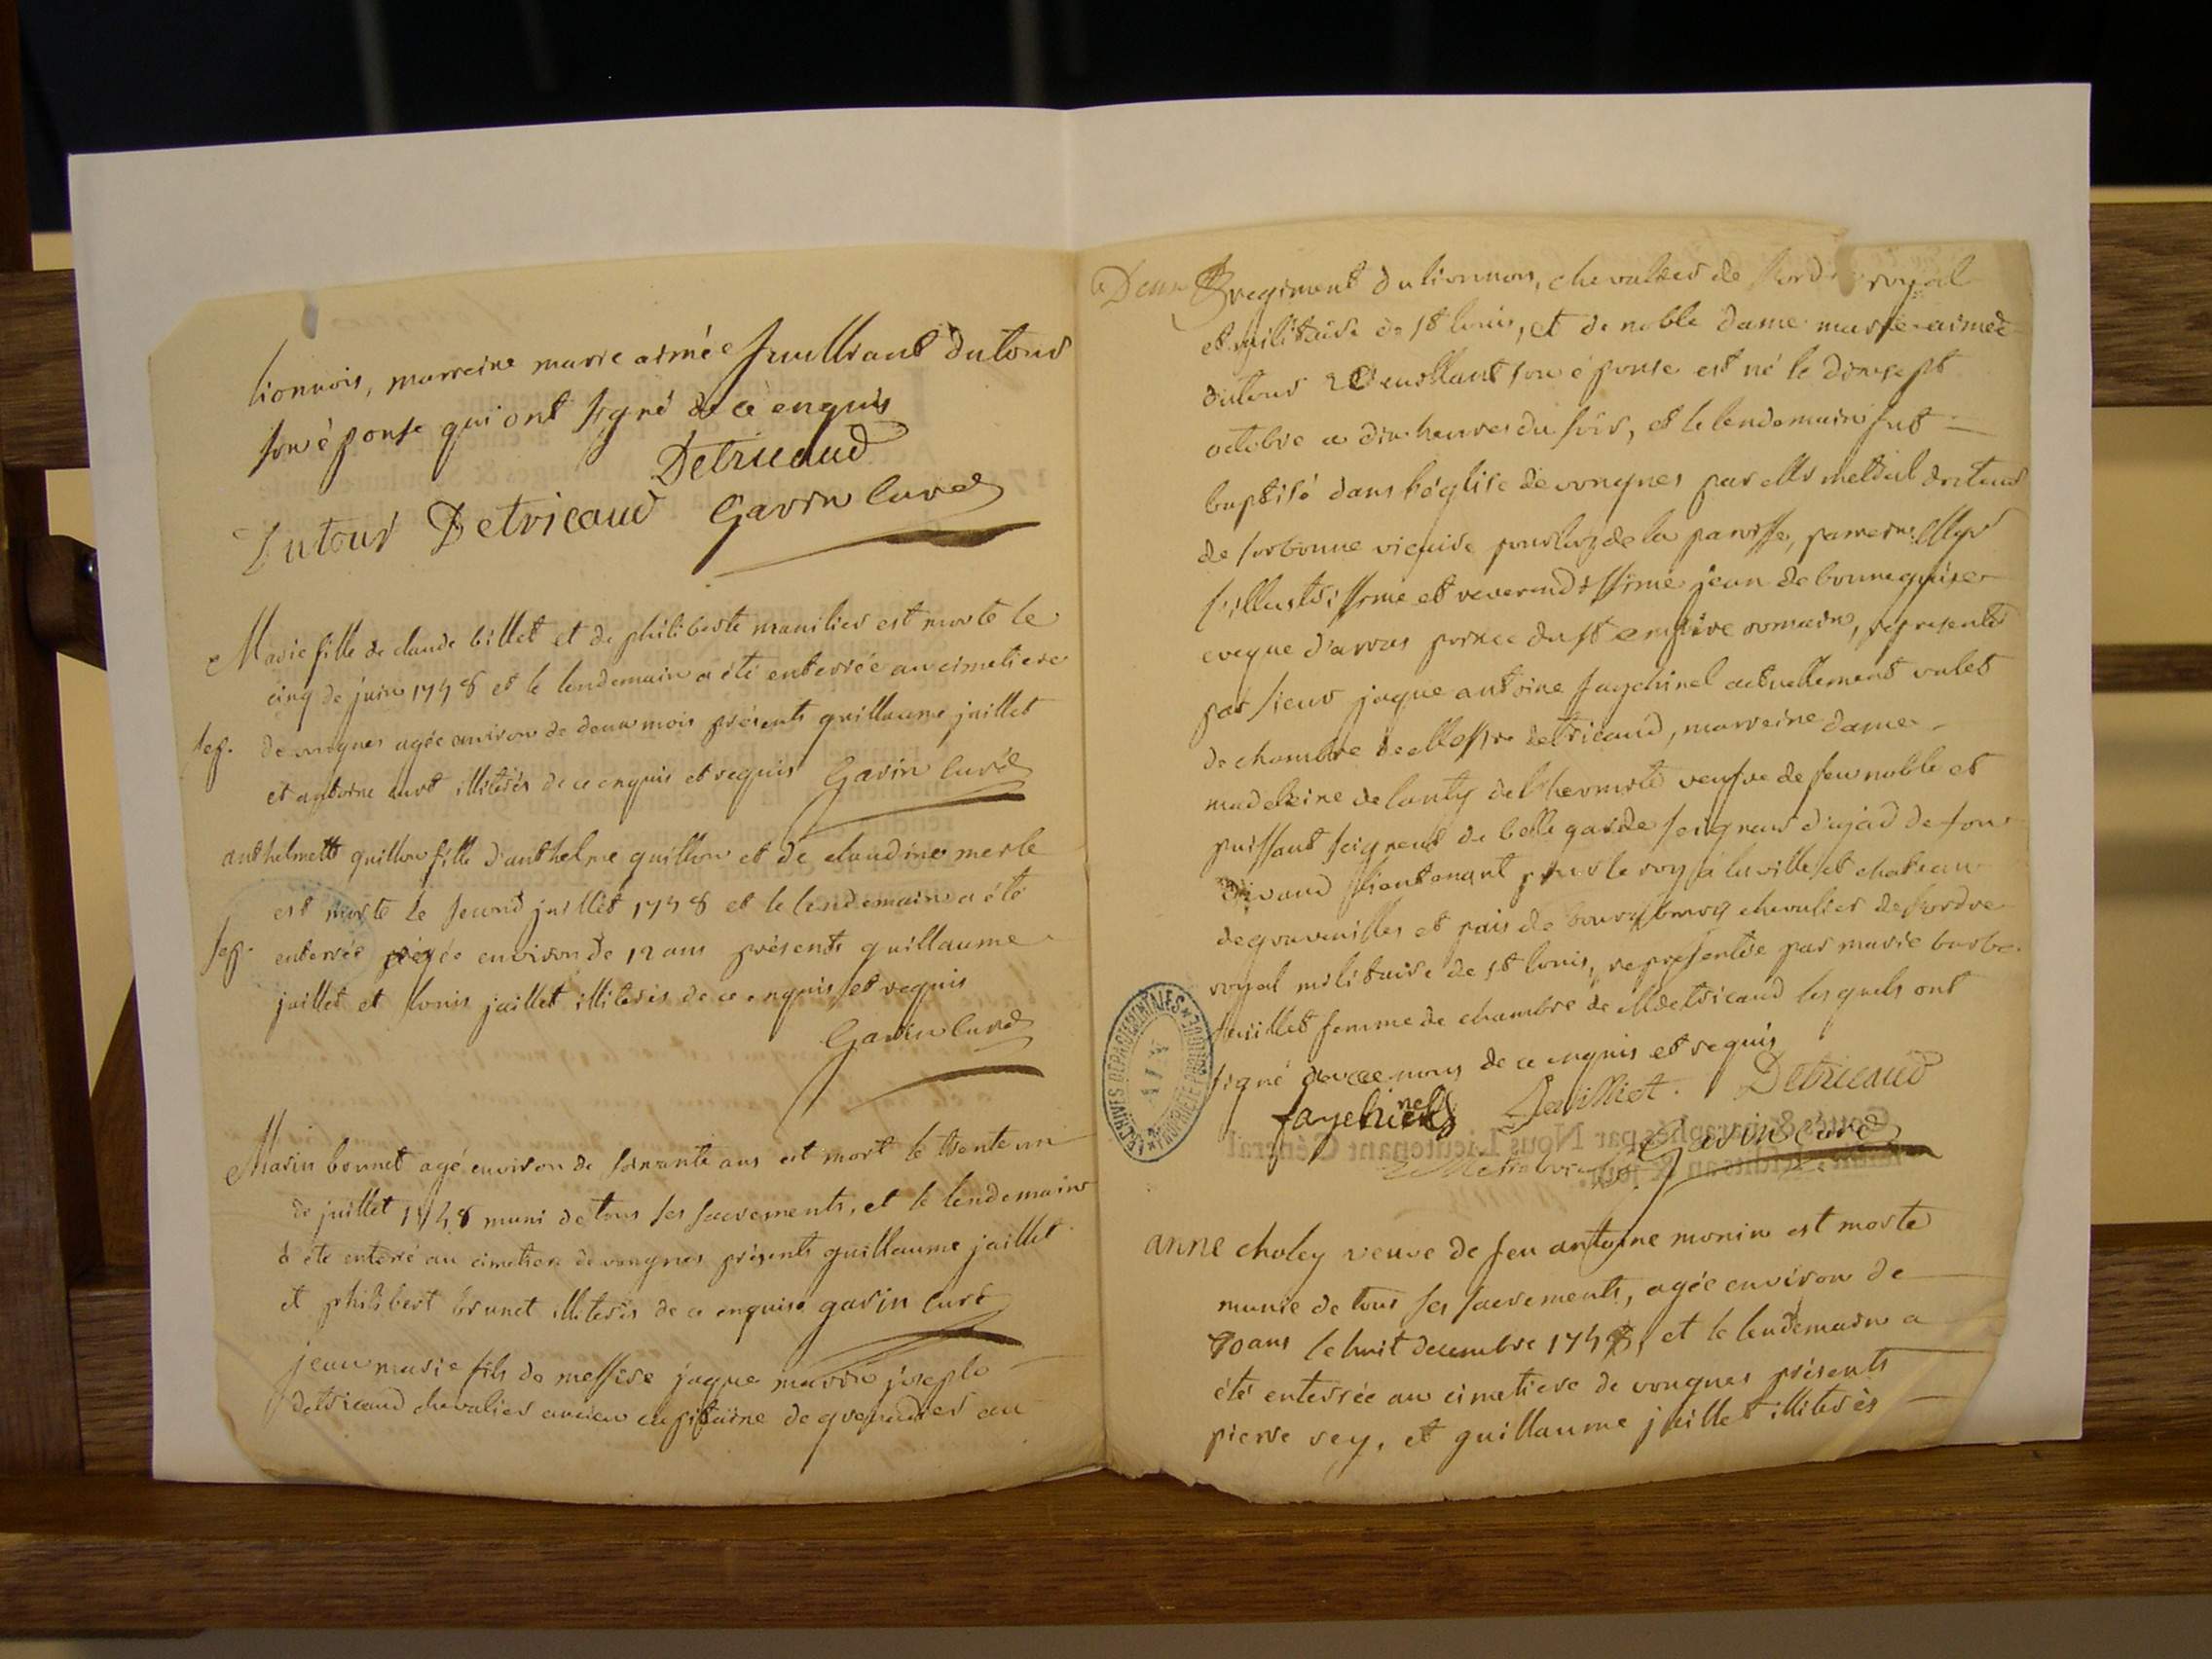 lionnois, marreine marie aimée Juilliant dutour
son éponse qui ont signé de ce enquis
Detricaud
Dutour Detricaud Gavin curé
Marie fille de claude billet et de philiberte manilier est morte le
cinq de juin 1748 et le lendemain a été enterrée au cimetiere
sep. de vongnes agée environ de deux mois présents guillaume juillet
et antoine curt illiterés de ce enquis et requis Gavin curé
anthelmette guillon fille d'anthelme guillon et de claudine merle
est morte le second juillet 1748 et le lendemain a été
sep. enterrée agée environ de 12 ans présents guillaume
juillet et louis juillet illiterés de ce enquis et requis
Gavin curé
Marin bonnet agé environ de soixante ans est mort le trente un
de juillet 1748 muni de tous ses sacrements, et le lendemain
a été enterré au cimetiere de vongnes présents guillaume juillet
et philibert brunet illiterés de ce enquis gavin curé
jean marie fils de messire jaque marie joseph
detricaud chevalier ancien capitaine de grenadier au
Deux regiment du lionnois, chevalier de l'ordre royal
et militaire de st louis, et de noble dame marie aimée
dutour Vuillant son éponse est né le dixsept
octobre a dix heures du soir, et le lendemain fut
baptisé dans l'église de vongnes par Mr metral docteur
de sorbonne vicaire de la paroisse, parrein Mgr
l'illustrissime et reverendissime jean de bonneguise
eveque d'arras prince du st empire romain, representé
par sieur jaque antoine fayehinel actuellement valet
de chambre de Messire detricaud, marreine dame
madeleine de lanty de l'hermite veufve de feu noble et
puissant seigneur de belle garde seigneur d'ajad de fon
lieutenant pour le roy a la ville et chateau
de et pais de chevalier de l'ordre
royal militaire de st louis, representée par marie barbe
juillet femme de chambre de Md detricaud lesquels ont
signé avec nous de ce enquis et requis
fayehinel Juilliet. Detricaud
Metral vic. Gavin curé
anne choley veuve de feu antoine monin est morte
munie de tous ses sacrements, agée environ de
70 ans le huit decembre 1748, et le lendemain a
été enterrée au cimetiere de vongnes présents
pierre rey, et guillaume juillet illiterés
ARCHIVES DEPARTEMENTALES
AIN
PROPRIETE PUBLIQUE
Cottés & paraphés par Nous Lieutenant Général